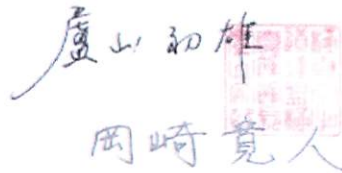 盧山初雄
岡崎寛人